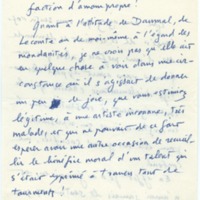 faction d'amour-propre !
Quant à l'attitude de Daumal, de
Lecomte ou de moi-même à l'égard des
mondanités, je ne vois pas qu'elle ait
en quelque chose à voir dans une cir-
constance où il s'agissait de donner
un peu de joie, que vous estimez
légitime, à une artiste inconnue, très
malade, et qui ne pouvait de ce fait
espérer avoir une autre occasion de recueil-
lir le bénéfice moral d'un talent qui
s'était exprimé à travers tant de
tourments